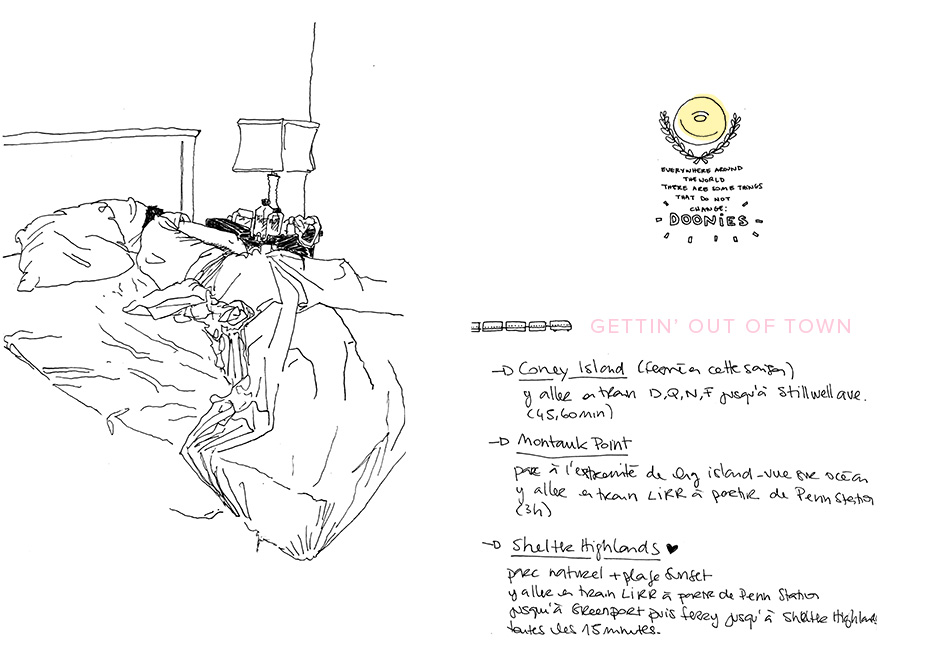 EVERYWHERE AROUND
THE WORLD
THERE ARE SOME THINGS
THAT DO NOT
CHANGE:
DOONIES
GETTIN' OUT OF TOWN
Coney Island (fermé en cette saison)
y aller en train D,Q,N,F jusqu'à Stillwell ave.
(45,60min)
Montauk Point
parc à l'extremité de long island - vue sur océan
y aller en train LIRR à partir de Penn Station
(3h)
Shelter Highlands ♥
parc naturel + plage Sunset
y aller en train LIRR à partir de Penn Station
jusqu'à Greenport puis ferry jusqu'à Shelter Highlands
toutes les 15 minutes.